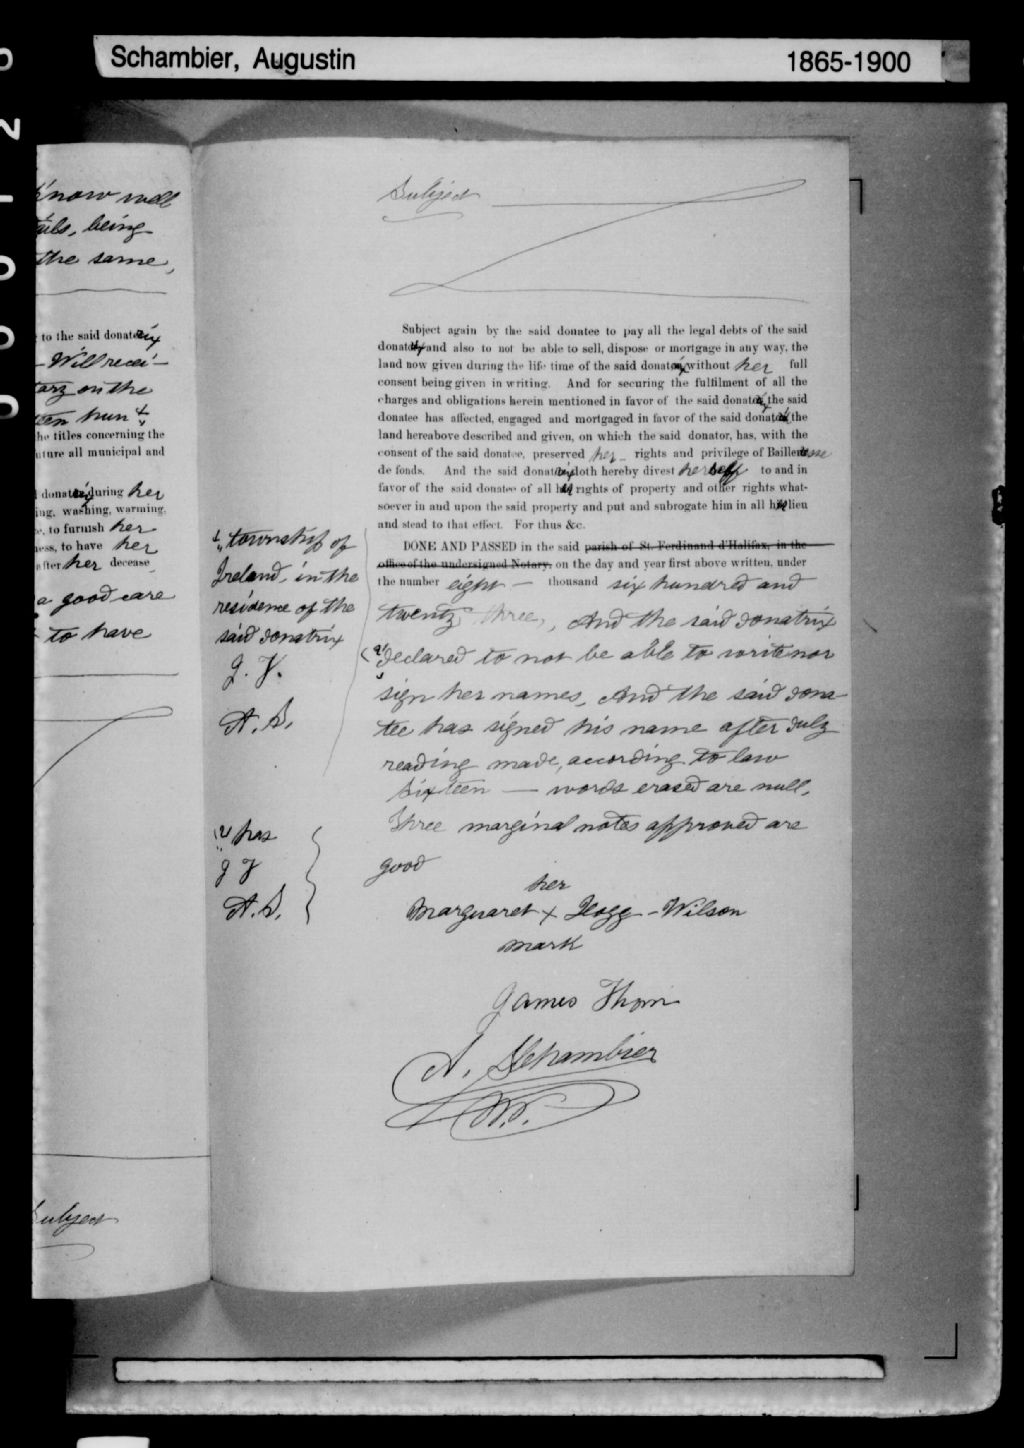 Schambier, Augustin
1865-1900
know well
being
the same,
to the said donatrix
Will recei-
on the
hun
he titles concerning the
uture all municipal and
donatrix during her
ing, washing, warming,
to furnish her
ness, to have her
after her decease
a good care
to have
Subject
Subject
Subject again by the said donatee to pay all the legal debts of the said
donatrix and also to not be able to sell, dispose or mortgage in any way, the
land now given during the life time of the said donatrix without her full
consent being given in writing. And for securing the fulfilment of all the
charges and obligations herein mentioned in favor of the said donatrix the said
donatee has affected, engaged and mortgaged in favor of the said donatrix the
land hereabove described and given, on which the said donator, has, with the
consent of the said donatee, preserved her rights and privilege of Bailleresse
de fonds. And the said donatrix doth hereby divest herself to and in
favor of the said donatee of all her rights of property and other rights what-
soever in and upon the said property and put and subrogate him in all his lieu
and stead to that effect. For thus &c.
DONE AND PASSED in the said parish of St. Ferdinand d'Halifax, in the
office of the undersigned Notary, on the day and year first above written, under
the number eight — thousand six hundred and
twenty three, And the said donatrix
declared to not be able to write nor
sign her names, And the said dona
tee has signed his name after duly
reading made, according to law
Sixteen — words erased are null,
Three marginal notes approved are
good
township of
Ireland, in the
residence of the
said donatrix
J. T.
A. S.
has
J T
A. S.
her
Marguaret x Hogg - Wilson
mark
James Thom
A. Schambier
N.P.